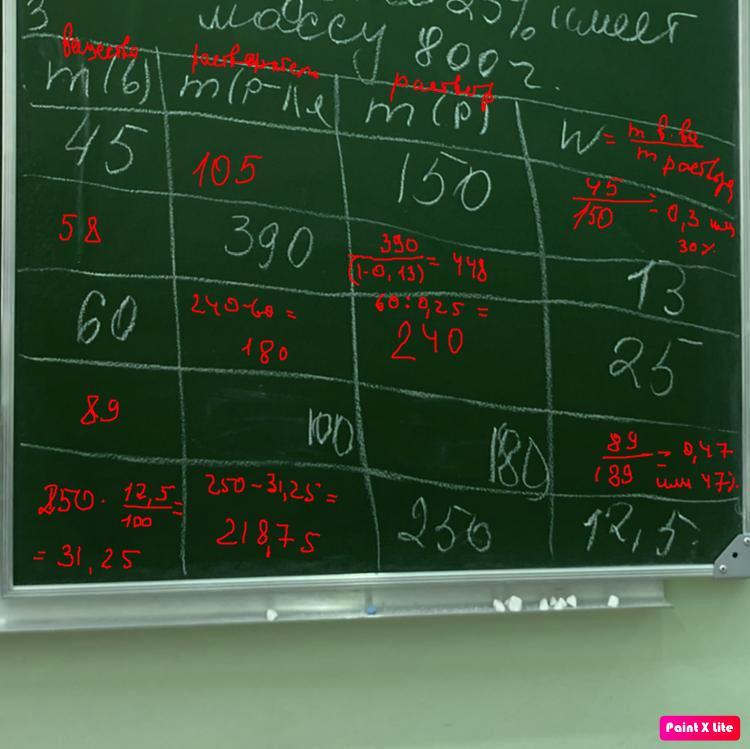 3 25% имеет
массу 800 г.
вещество растворителя раствор
m(в) m(р-ля m(р) W = m в-ва / m раствора
45 105 150 45/150 = 0,3 или 30%
58 390 390/(1-0,13) = 448 13
60 240-60 = 180 60:0,25 = 240 25
89 100 180 89/189 = 0,47 или 47%
250 · 12,5/100 = = 31,25 250-31,25 = 218,75 250 12,5
Paint X Lite